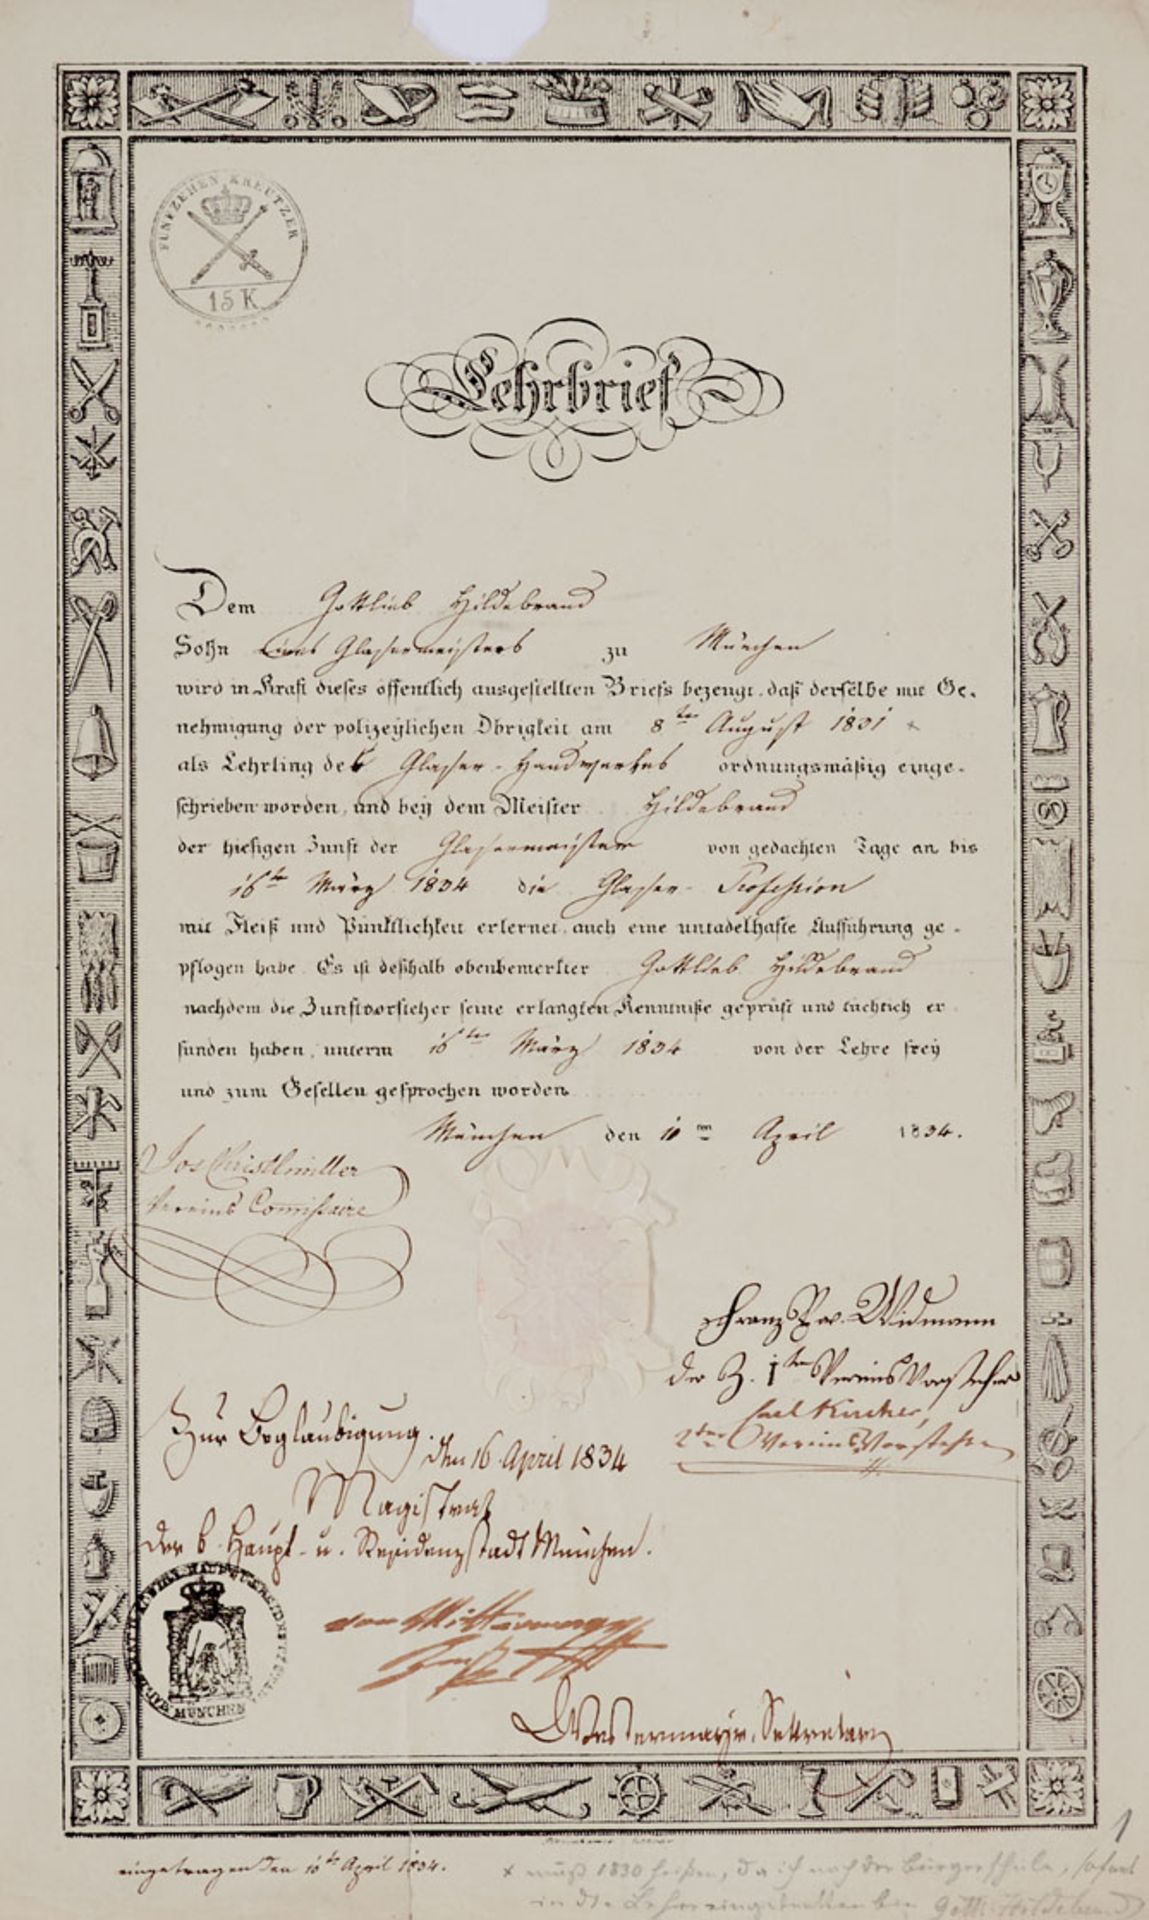 FÜNFZEHEN KREUTZER
15 K
Lehrbrief
Dem Gottlieb Hildebrand
Sohn eines Glasermeisters zu München
wird in Kraft dieses öffentlich ausgestellten Briefs bezeugt, daß derselbe mit Ge-
nehmigung der polizeylichen Obrigkeit am 8ten August 1831 ×
als Lehrling des Glaser-Handwerkes ordnungsmäßig einge-
schrieben worden, und bey dem Meister Hildebrand
der hiesigen Zunft der Glasermeister von gedachten Tage an bis
16te März 1834 die Glaser-Profession
mit Fleiß und Pünktlichkeit erlernet, auch eine untadelhafte Aufführung ge-
pflogen habe. Es ist deßhalb obenbemerkter Gottlieb Hildebrand
nachdem die Zunftvorsteher seine erlangten Kenntniße geprüft und tüchtich er
funden haben, unterm 16ten März 1834 von der Lehre frey
und zum Gesellen gesprochen worden.
München den 10ten April 1834.
Jos Christlmüller
Vereins Commissaire
Franz Xav. Widmann
der Z. 1ter Vereins Vorsteher
Carl Kircher,
2ter Vereins Vorsteher
Zur Beglaubigung.
Den 16 April 1834
Magistrat
der k. Haupt- u. Residenzstadt München.
MÜNCHEN
Sekretär
eingetragen den 10ten April 1834.
× muß 1830 heißen, da ich nach der Bürgerschule, sofort
in die Lehre eingetretten bin Gottl. Hildebrand
1